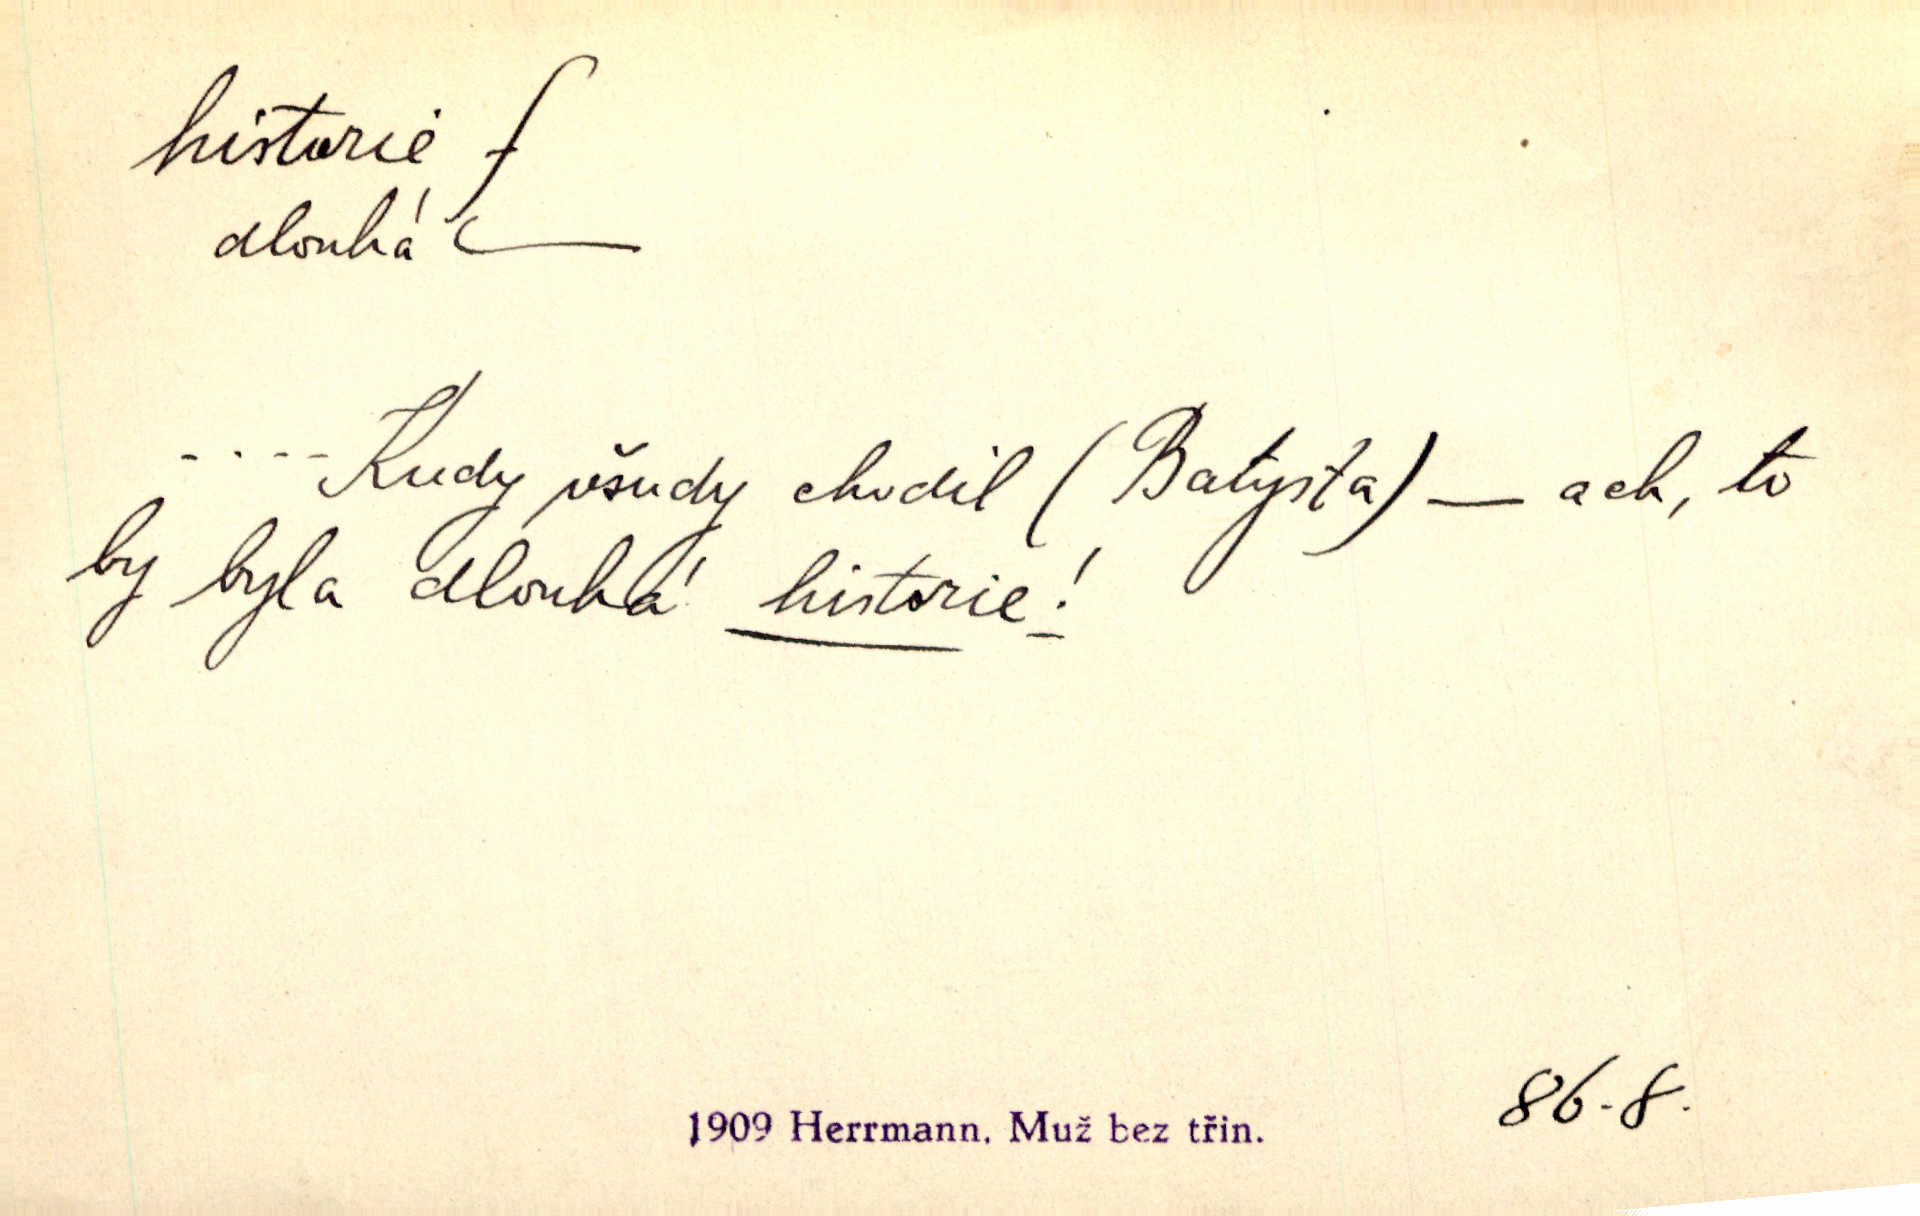 historie f
dlouhá
.....Kudy všudy chodil (Batysta) — ach, to
by byla dlouhá historie!
86-8.
1909 Herrmann. Muž bez třin.